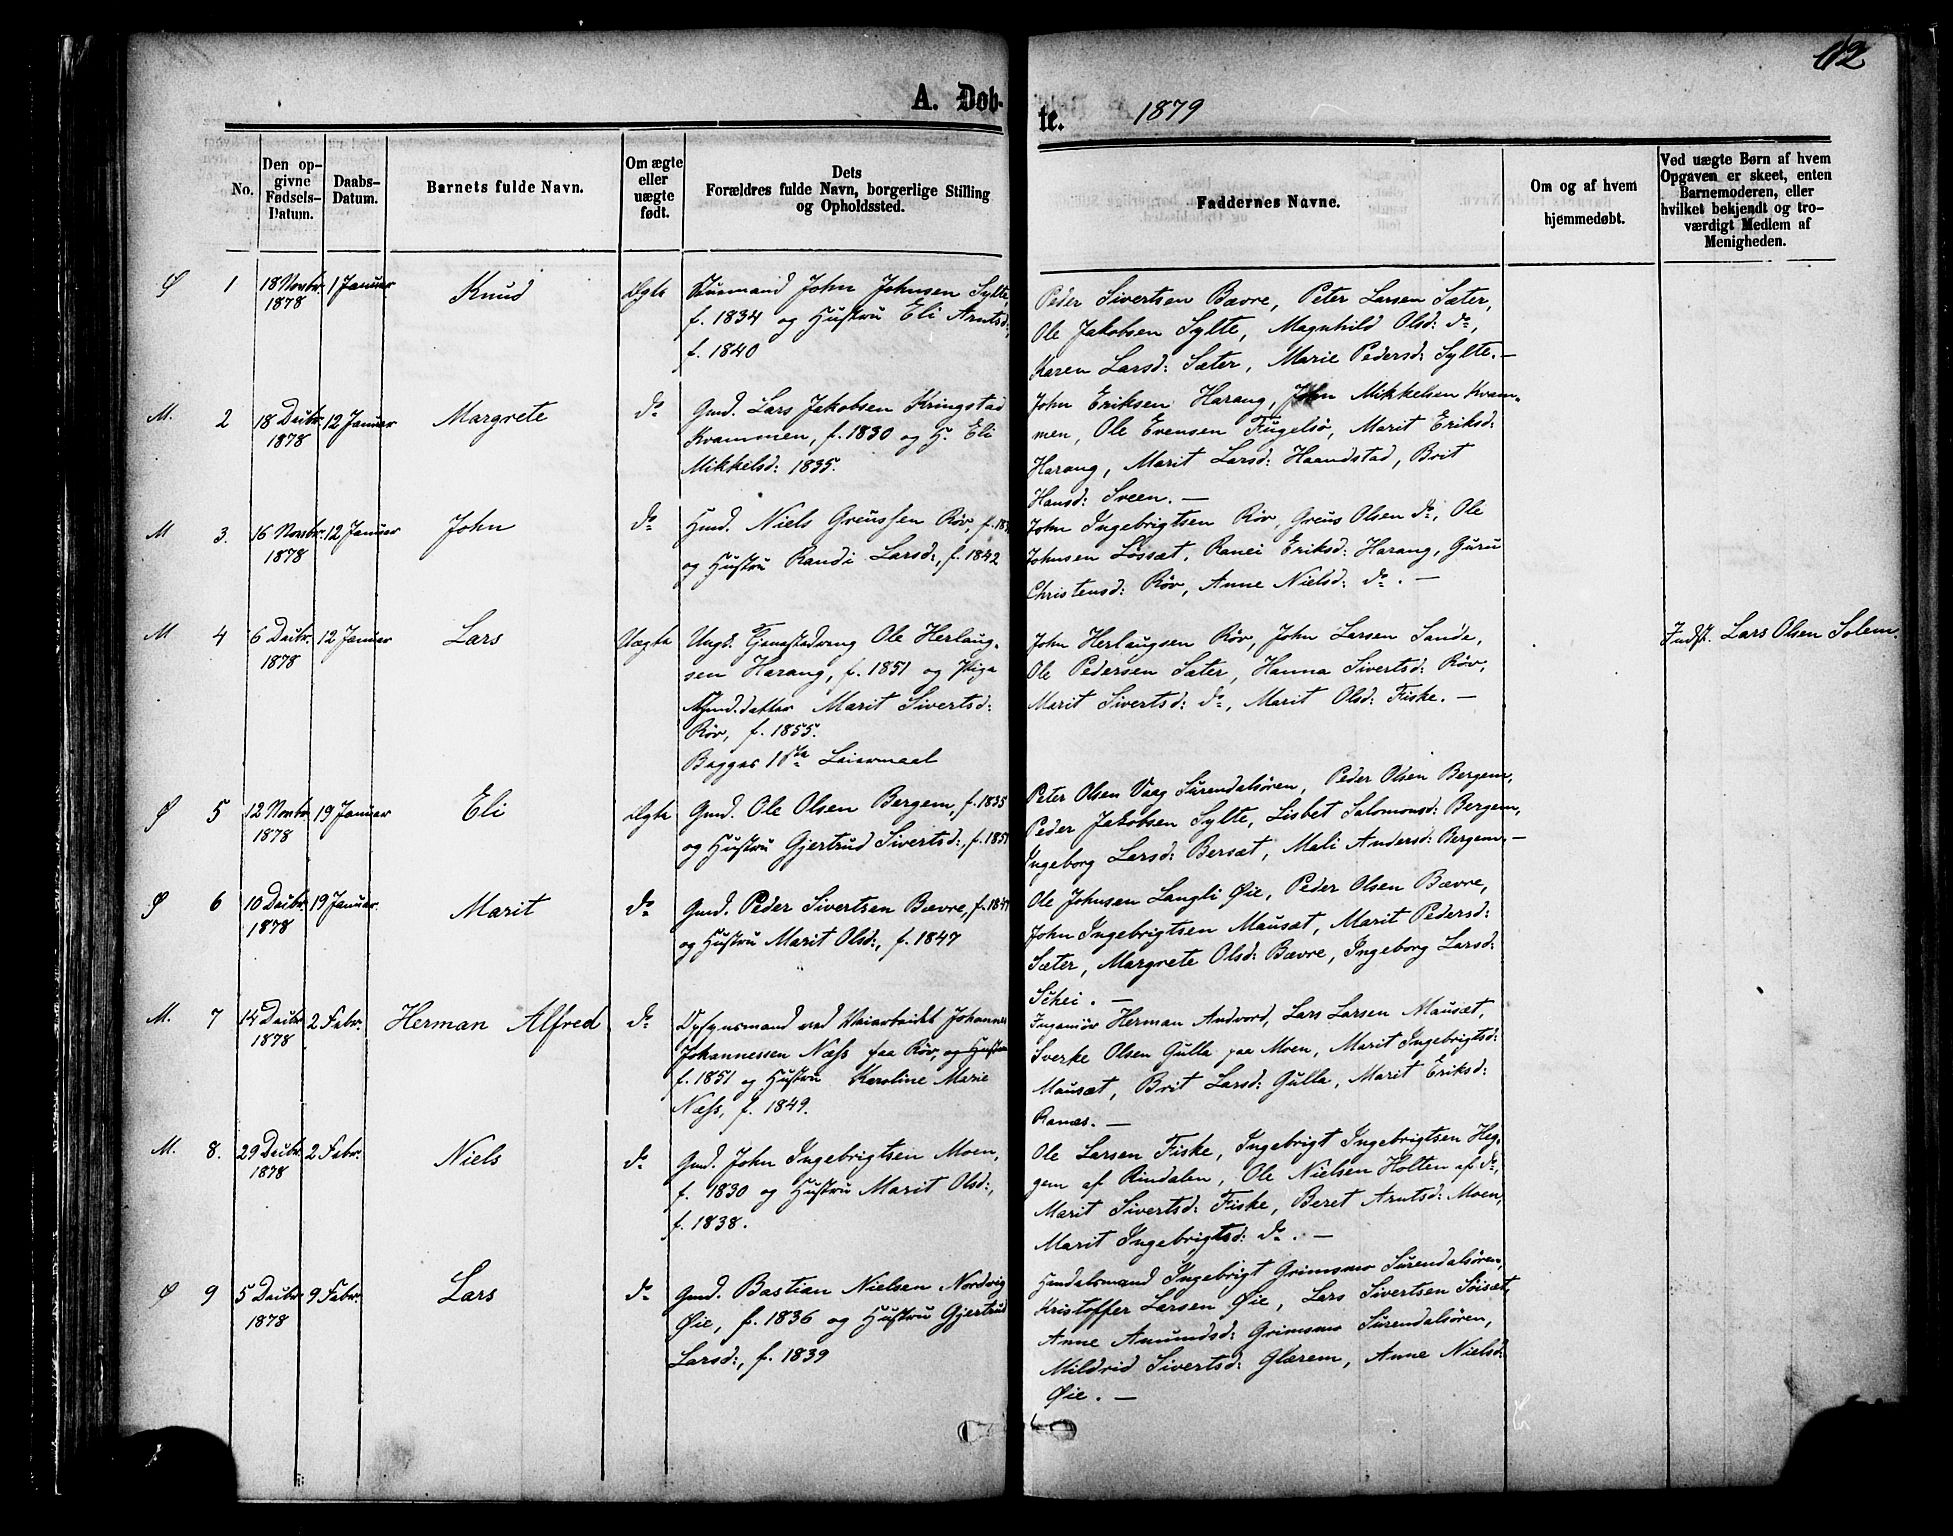 112
A. Døb-
te. 1879
No.
Den op-
givne
Fødsels-
Datum.
Daabs-
Datum.
Barnets fulde Navn.
Om ægte
eller
uægte
født.
Dets
Forældres fulde Navn, borgerlige Stilling
og Opholdssted.
Faddernes Navne.
Om og af hvem
hjemmedøbt.
Ved uægte Børn af hvem
Opgaven er skeet, enten
Barnemoderen, eller
hvilket bekjendt og tro-
værdigt Medlem af
Menigheden.
Ø 1 18 Novbr. 1 Januar Knud Ægte
1878
Huusmand John Johnsen Sylte,
f. 1834 og Hustru Eli Arntsd:,
f. 1840
Peder Sivertsen Bævre, Peter Larsen Sæter,
Ole Jakobsen Sylte, Magnhild Olsd: do,
Karen Larsd: Sæter, Marie Pedersd: Sylte. —
M. 2 18 Decbr. 12 Januar Margrete do
1878
Gmd. Lars Jakobsen Kringstad
Kvammen, f. 1830 og H. Eli
Mikkelsd: 1835.
John Eriksen Harang, John Mikkelsen Kvam-
men, Ole Evensen Fugelsø, Marit Eriksd:
Harang, Marit Larsd: Haandstad, Brit
Hansd: Sveen. —
M 3. 16 Novbr. 12 Januar John do
1878
Hmd. Niels Greussen Røv, f.
og Hustru Randi Larsd:, f. 1842
John Ingebrigtsen Røv, Greus Olsen do, Ole
Johnsen Løssæt, Ranei Eriksd: Harang, Guru
Christensd: Røv, Anne Nielsd: do. —
M 4 6 Decbr. 12 Januar Lars Uægte
1878
Ungk. Ole Herlaug-
sen Harang, f. 1851 og Pige
Gmd.datter Marit Sivertsd:
Røv, f. 1855.
Begges 1ste Leiermaal
John Herlaugsen Røv, John Larsen Sande,
Ole Pedersen Sæter, Hanna Sivertsd: Røv,
Marit Sivertsd: do, Marit Olsd: Fiske. —
Indst. Lars Olsen Solem.
Ø 5 12 Novbr. 19 Januar Eli Ægte
1878
Gmd. Ole Olsen Bergem, f. 1835
og Hustru Gjertrud Sivertsd:, f. 1851
Peter Olsen Vaag Surendalsøren, Peder Olsen Bergem,
Peder Jakobsen Sylte, Lisbet Salomonsd: Bergem,
Ingeborg Larsd: Bersæt, Mali Andersd: Bergem. —
Ø 6 10 Decbr. 19 Januar. Marit do
1878
Gmd. Peder Sivertsen Bævre, f. 1847
og Hustru Marit Olsd:, f. 1847
Ole Johnsen Langli Øie, Peder Olsen Bævre,
John Ingebrigtsen Mausæt, Marit Pedersd:
Sæter, Margrete Olsd: Bævre, Ingeborg Larsd:
Schei. —
M. 7 14 Decbr. 2 Febr. Herman Alfred do
1878
Opsynsmand ved Veiarbeidet Johannes
Johannessen Næss paa Røv, og Hustru
f. 1851 og Hustru Karoline Marie
Næss, f. 1849.
Ingeniør Herman Andvord, Lars Larsen Mausæt,
Sverke Olsen Gulla paa Moen, Marit Ingebrigtsd:
Mausæt, Brit Larsd: Gulla, Marit Eriksd:
Ranæs. —
M. 8. 29 Decbr. 2 Febr. Niels do
1878
Gmd. John Ingebrigtsen Moen,
f. 1830 og Hustru Marit Olsd:,
f. 1838.
Ole Larsen Fiske, Ingebrigt Ingebrigtsen Heg-
gem af Rindalen, Ole Nielsen Holten af do,
Marit Sivertsd: Fiske, Beret Arntsd: Moen,
Marit Ingebrigtsd: do. —
Ø 9 5 Decbr. 9 Febr. Lars do
1878
Gmd. Bastian Nielsen Nordvig
Øie, f. 1836 og Hustru Gjertrud
Larsd:, f. 1839
Handelsmand Ingebrigt Grimsmo Surendalsøren,
Kristoffer Larsen Øie, Lars Sivertsen Søisæt,
Anne Amundsd: Grimsmo Surendalsøren,
Mildrid Sivertsd: Glærem, Anne Nielsd:
Øie. —